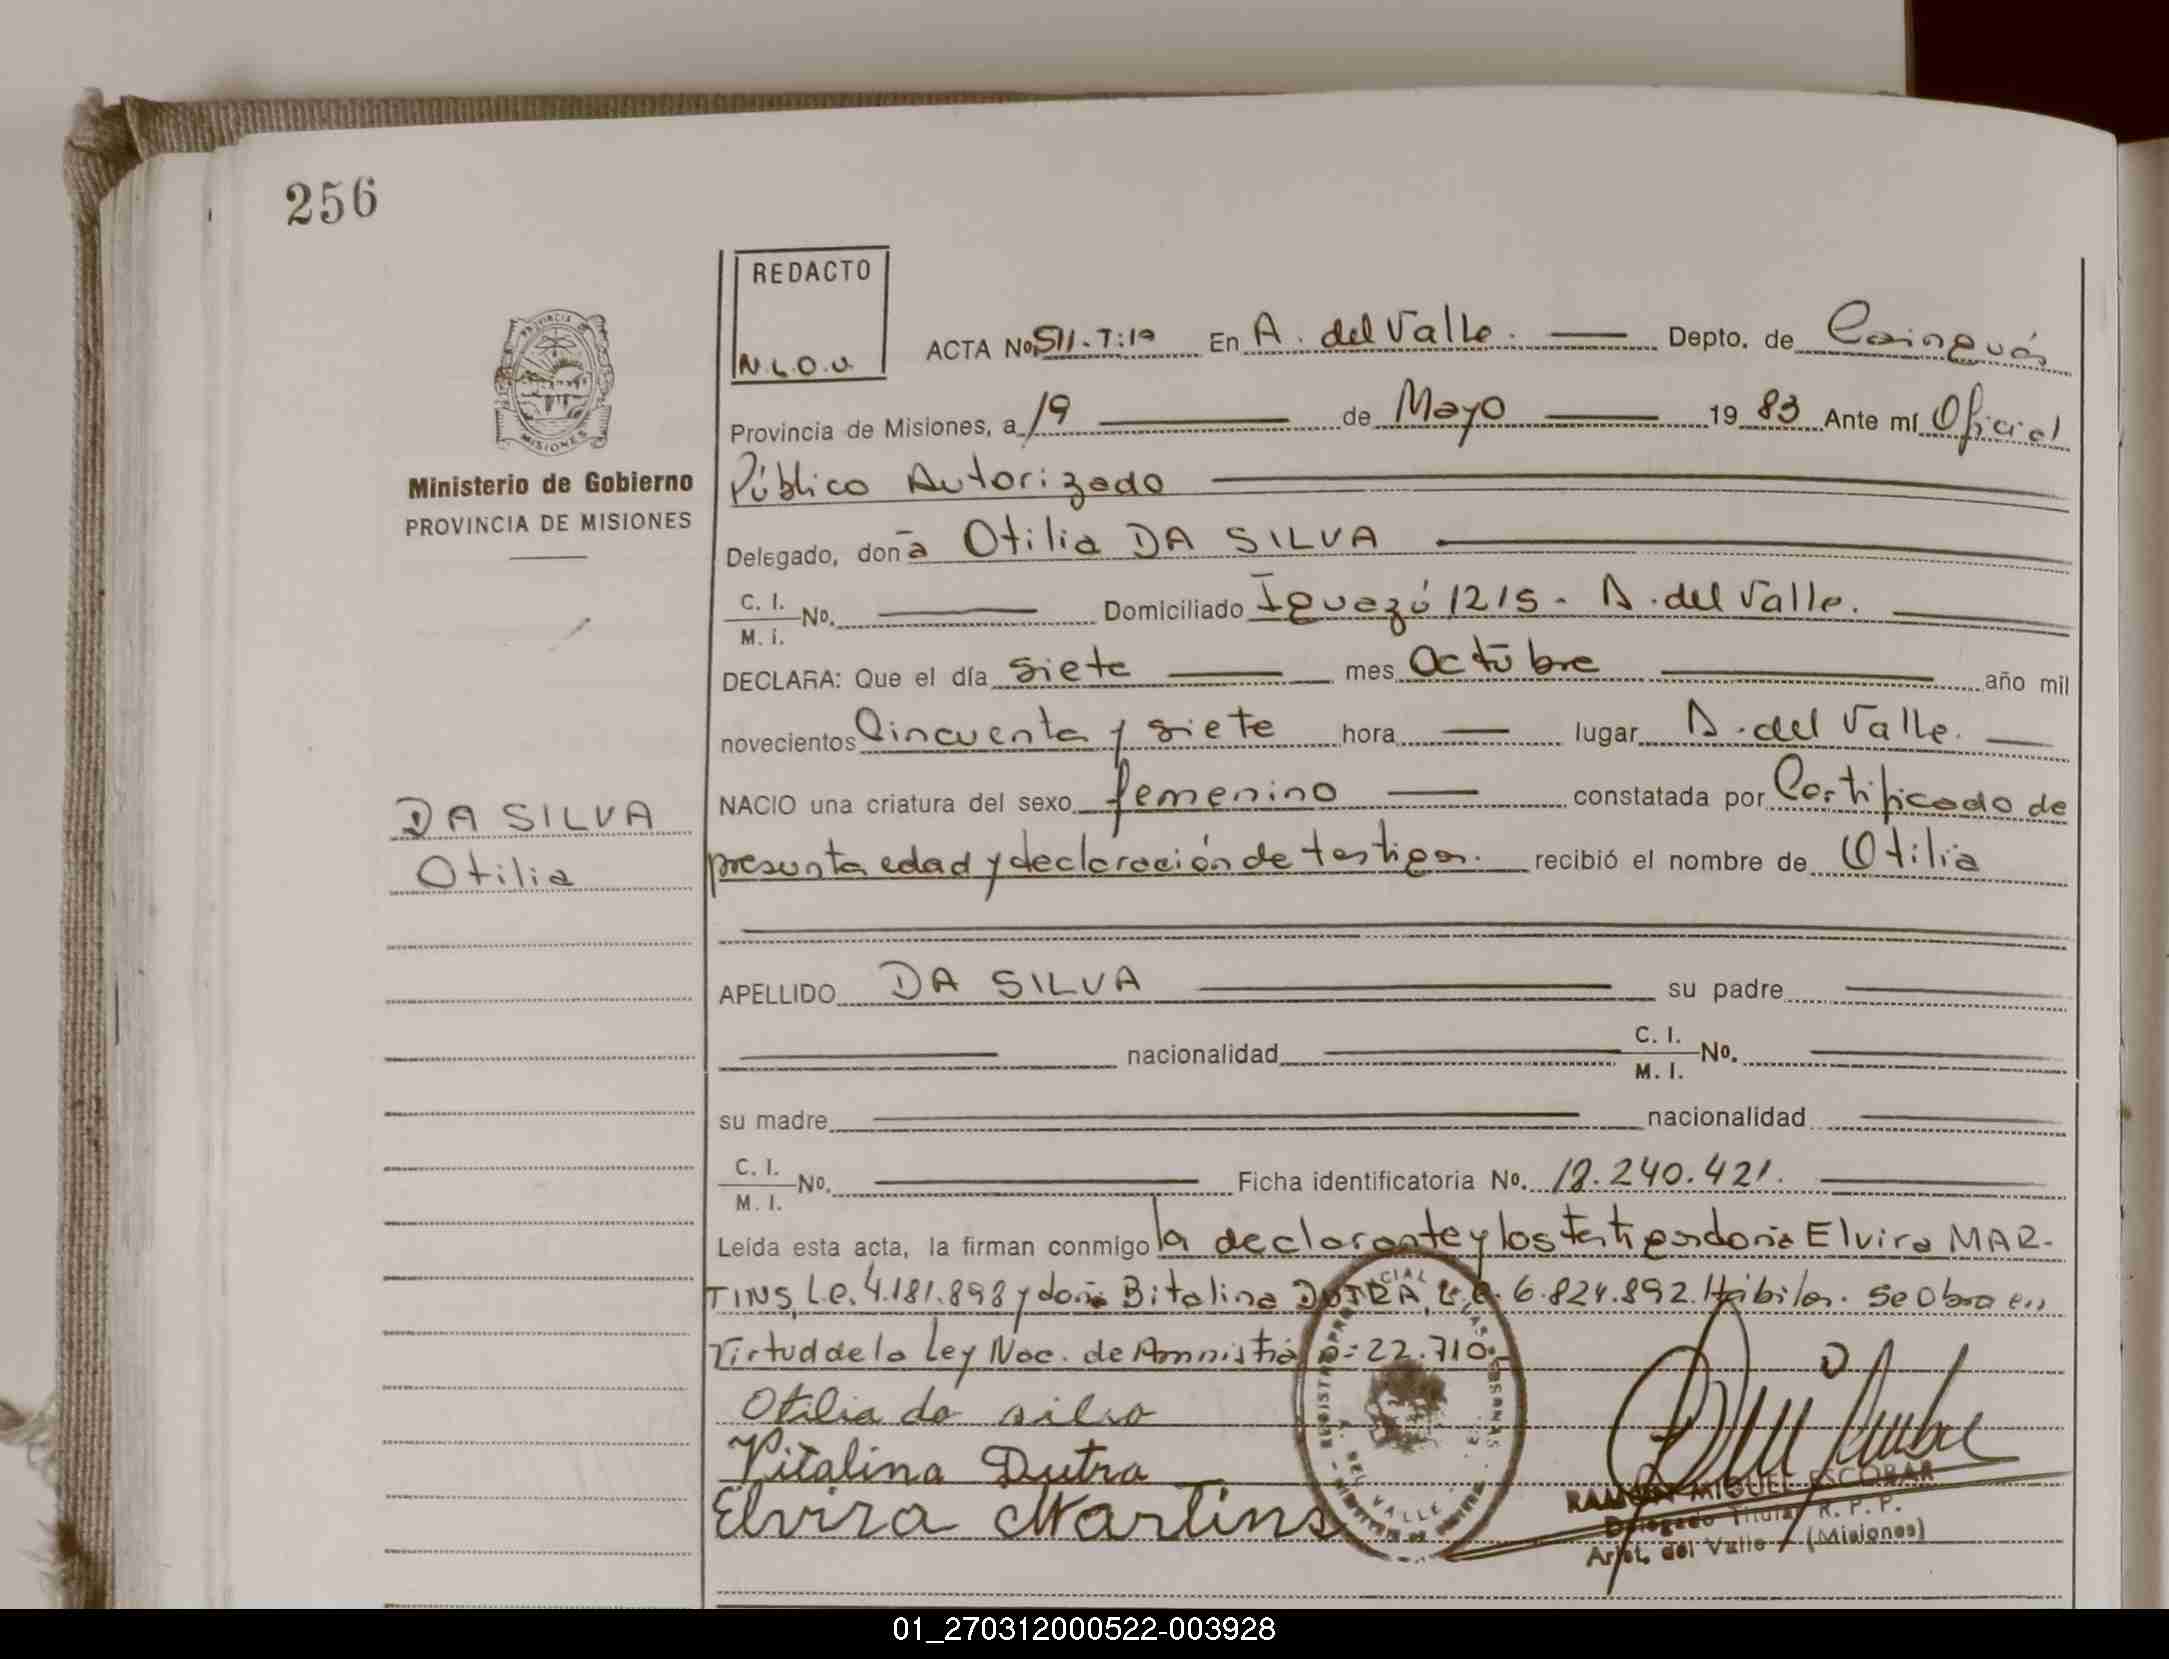 256
REDACTO
N.L.O.U.
PROVINCIA DE
MISIONES
Ministerio de Gobierno
PROVINCIA DE MISIONES
ACTA Nº 511-T:1º En A. del Valle. Depto. de Cainguás
Provincia de Misiones, a 19 de Mayo 1983 Ante mí Oficial
Público Autorizado
Delegado, doña Otilia DA SILVA
C. I.
M. i. Nº. Domiciliado Iguazú 1215 - A. del Valle.
DECLARA: Que el día siete mes Octubre año mil
novecientos Cincuenta y siete hora lugar A. del Valle.
NACIO una criatura del sexo femenino constatada por Certificado de
presunta edad y declaración de testigos. recibió el nombre de Otilia
DA SILVA
Otilia
APELLIDO DA SILVA su padre
nacionalidad C. I.
M. I. Nº.
su madre nacionalidad
C. I.
M. I. Nº. Ficha identificatoria Nº. 18.240.421.
Leída esta acta, la firman conmigo la declarante y los testigos doña Elvira MAR-
TINS, L.c. 4.181.898 y doña Bitalina DUTRA, L.c. 6.824.892. Hábiles. Se Obra en
Virtud de la Ley Nac. de Amnistía Nº: 22.710.-
Otilia da silva
Vitalina Dutra
Elvira Martins
DEL VALLE
RAMON MIGUEL ESCOBAR
Delegado Titular R. P. P.
Arist. del Valle (Misiones)
01_270312000522-003928